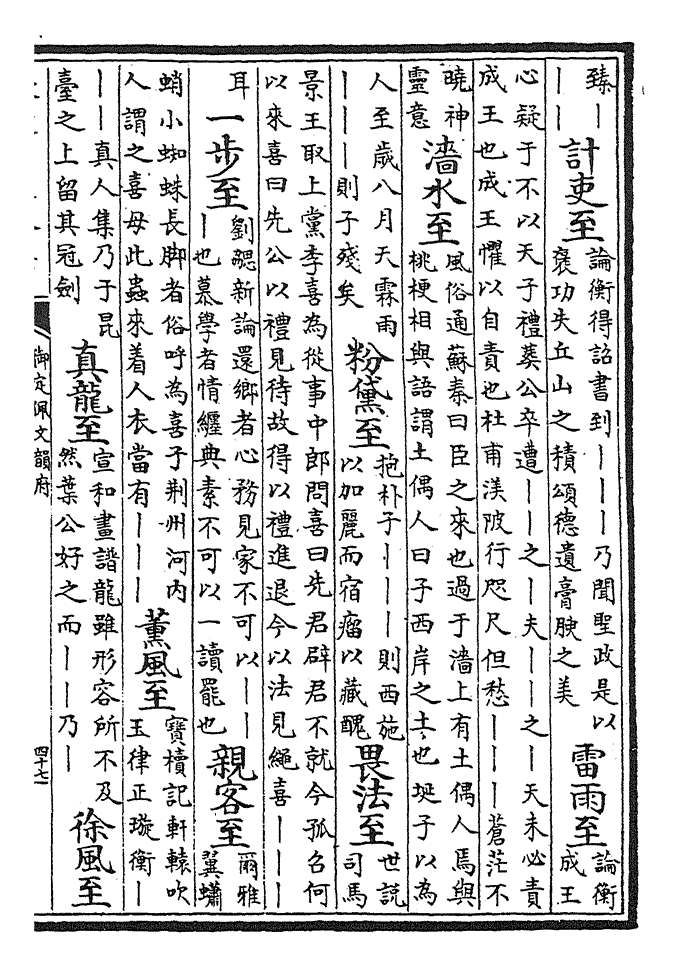 臻丨
丨丨
計吏至
論衡得詔書到丨丨丨乃聞聖政是以
襃功失丘山之積頌德遺膏腴之美
雷雨至
論衡
成王
心疑于不以天子禮葬公卒遭丨丨之丨夫丨丨之丨天未必責
成王也成王懼以自責也杜甫渼陂行咫尺但愁丨丨丨蒼茫不
曉神
靈意
濇水至
風俗通蘇秦曰臣之來也過于濇上有土偶人焉與
桃梗相與語謂土偶人曰子西岸之土也埏子以為
人至歲八月天霖雨
丨丨丨則子殘矣
粉黛至
抱朴子丨丨丨則西施
以加麗而宿瘤以藏醜
畏法至
世説
司馬
景王取上黨李喜為從事中郎問喜曰先君辟君不就今孤召何
以來喜曰先公以禮見待故得以禮進退今以法見繩喜丨丨丨
耳
一步至
劉勰新論還鄉者心務見家不可以丨丨
丨也慕學者情纏典素不可以一讀罷也
親客至
爾雅
翼蠨
蛸小蜘蛛長脚者俗呼為喜子荆州河内
人謂之喜母此蟲來着人衣當有丨丨丨
薰風至
寶櫝記軒轅吹
玉律正璇衡丨
丨丨真人集乃于昆
臺之上留其冠劍
真龍至
宣和畫譜龍雖形容所不及
然葉公好之而丨丨乃丨
徐風至
御定佩文韻府
四十七